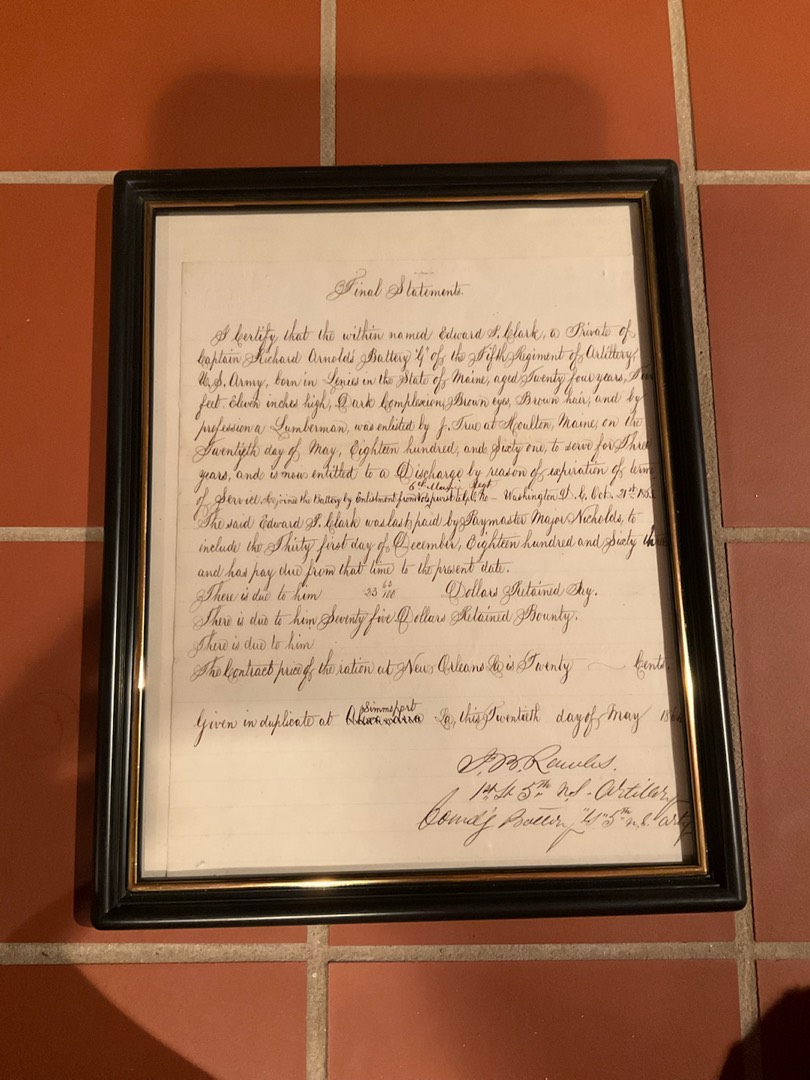 Final Statements.
I Certify, that the within named Edward F. Clark, a Private of
Captain Richard Arnolds Battery "G" of the Fifth Regiment of Artillery,
U.S. Army, born in in the State of Maine, aged Twenty four years,
feet Eleven inches high, Dark Complexion, Brown eyes, Brown hair, and by
profession a Lumberman, was enlisted by J. True at Houlton, Maine, on the
Twentyeth day of May, Eighteen hundred, and Sixty one, to serve for Three
years, and is now entitled to a Discharge by reason of expiration of term
6th Maine Regt
of Service joined the Battery by Enlistment from Washington D.C. Oct. 21st
The said Edward F. Clark was last paid by Paymaster Major Nicholds, to
include the Thirty first day of December, Eighteen hundred and Sixty
and has pay due from that time to the present date.
There is due to him 23 60/100 Dollars Retained Pay.
There is due to him Seventy five Dollars Retained Bounty.
There is due to him
The Contract price of the ration at New Orleans La is Twenty Cents.
Simmsport
Given in duplicate at La, this Twentieth day of May
1st Lt 5th U.S. Artillery
Comd'g Battery "G" 5th U.S. Arty